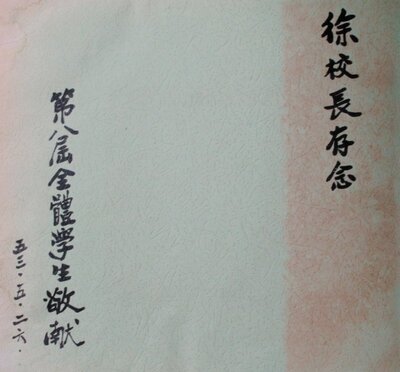 徐校長存念
第八屆全體學生敬献
五三.五.二六.